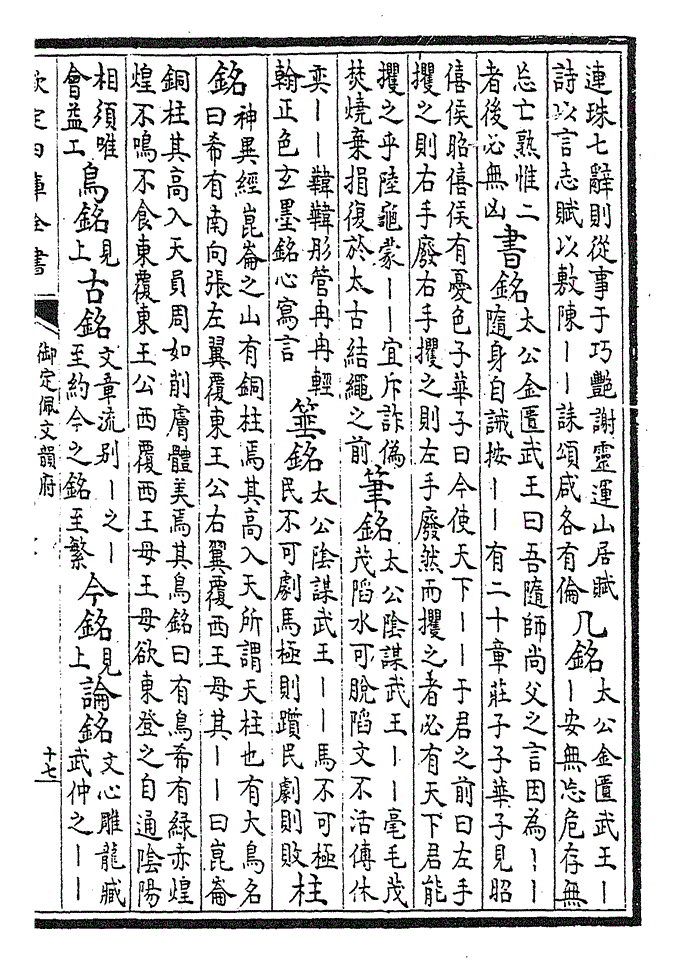 連珠七辭則從事于巧艷謝靈運山居賦
詩以言志賦以敷陳丨丨誄頌咸各有倫
几銘
太公金匱武王丨
丨安無忘危存無
忘亡熟惟二
者後必無凶
書銘
太公金匱武王曰吾隨師尚父之言因為丨丨
隨身自誡按丨丨有二十章莊子子華子見昭
僖侯昭僖侯有憂色子華子曰今使天下丨丨于君之前曰左手
攫之則右手廢右手攫之則左手廢然而攫之者必有天下君能
攫之乎陸龜蒙丨丨宜斥詐偽
焚燒棄捐復於太古結繩之前
筆銘
太公陰謀武王丨丨毫毛茂
茂陷水可脫陷文不活傅休
奕丨丨韡韡彤管冉冉輕
翰正色玄墨銘心寫言
箠銘
太公陰謀武王丨丨馬不可極
民不可劇馬極則躓民劇則敗
柱
銘
神異經崑崙之山有銅柱焉其高入天所謂天柱也有大鳥名
曰希有南向張左翼覆東王公右翼覆西王母其丨丨曰崑崙
銅柱其高入天員周如削膚體美焉其鳥銘曰有鳥希有綠赤煌
煌不鳴不食東覆東王公西覆西王母王母欲東登之自通陰陽
相須唯
會益工
鳥銘
見
上
古銘
文章流别丨之丨
至約今之銘至繁
今銘
見
上
論銘
文心雕龍臧
武仲之丨丨
欽定四庫全書
御定佩文韻府
十七